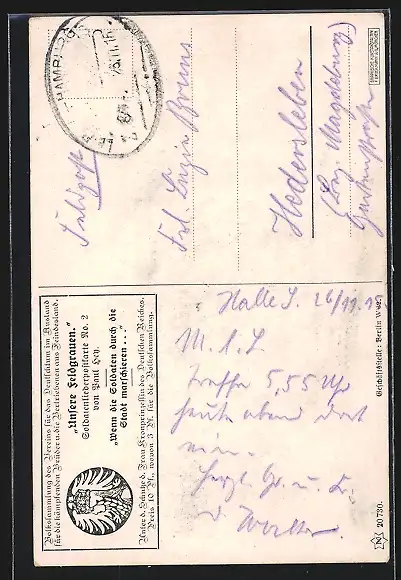 HAMBURG
26.11.16
Feldpost
Frl. Luzie Bruns
Hedersleben
(Bez. Magdeburg)
Gartenstraße
Volkssammlung des Vereins für das Deutschtum im Ausland
für die kämpfenden Brüder u. die Vertriebenen aus Feindesland.
"Unsere Feldgrauen."
Soldatenliederpostkarte No. 2
von Paul Hey
"Wenn die Soldaten durch die
Stadt marschieren . ."
Unter d. Schutze d. Frau Kronprinzessin d. Deutschen Reiches.
Preis 10 Pf., wovon 3 Pf. für die Volkssammlung.
Halle S. 26/11.
M. l. L.
treffe 5,55 Uhr
heute abend dort
ein.
Herzl. Gr. u. K.
Walter
Geschäftsstelle: Berlin W 62.
20730.